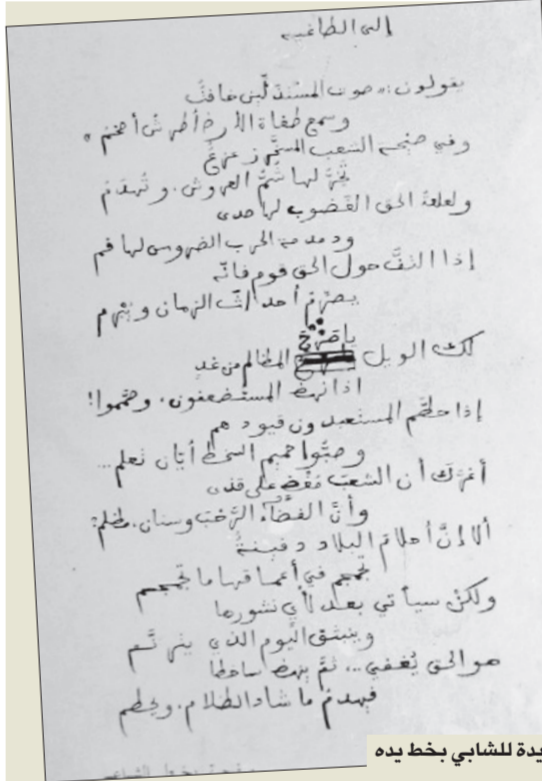 إلى الطاغية
يقولون: «صوت المستذلّين خافتٌ
وسمع طغاة الأرض أطرش أضخم»
وفي صيحة الشعب المسخَّر زعزعٌ
تخرّ لها شُمُّ العروش، وتُهدَمُ
ولعلعة الحق الغضوب لها صدى
ودمدمة الحرب الضروس لها فم
إذا التفَّ حول الحق قوم فانّه
يصرّم أحداثُ الزمان ويُبْرِم
لك الويل يا صرْح المظالم من غدٍ
اذا نهض المستضعفون، وصمّموا!
إذا حطّم المستعبدون قيودهم
وصبّوا حميم السخط أيّان تعلم...
أغرّك أن الشعبَ مُغْضٍ على قذى
وأنَّ الفضاء الرَّحبَ وسنان، مظلم؟
ألا إنَّ أحلام البلاد دفينةٌ
تجمجم في أعماقها ما تجمجم
ولكنْ سيأتي بعد لأيٍ نشورها
وينبثق اليوم الذي يترنَّم
هو الحق يُغفي... ثمّ ينهض ساخطا
فيهدمُ ما شاد الظلام، ويحطم
يدة للشابي بخط يده